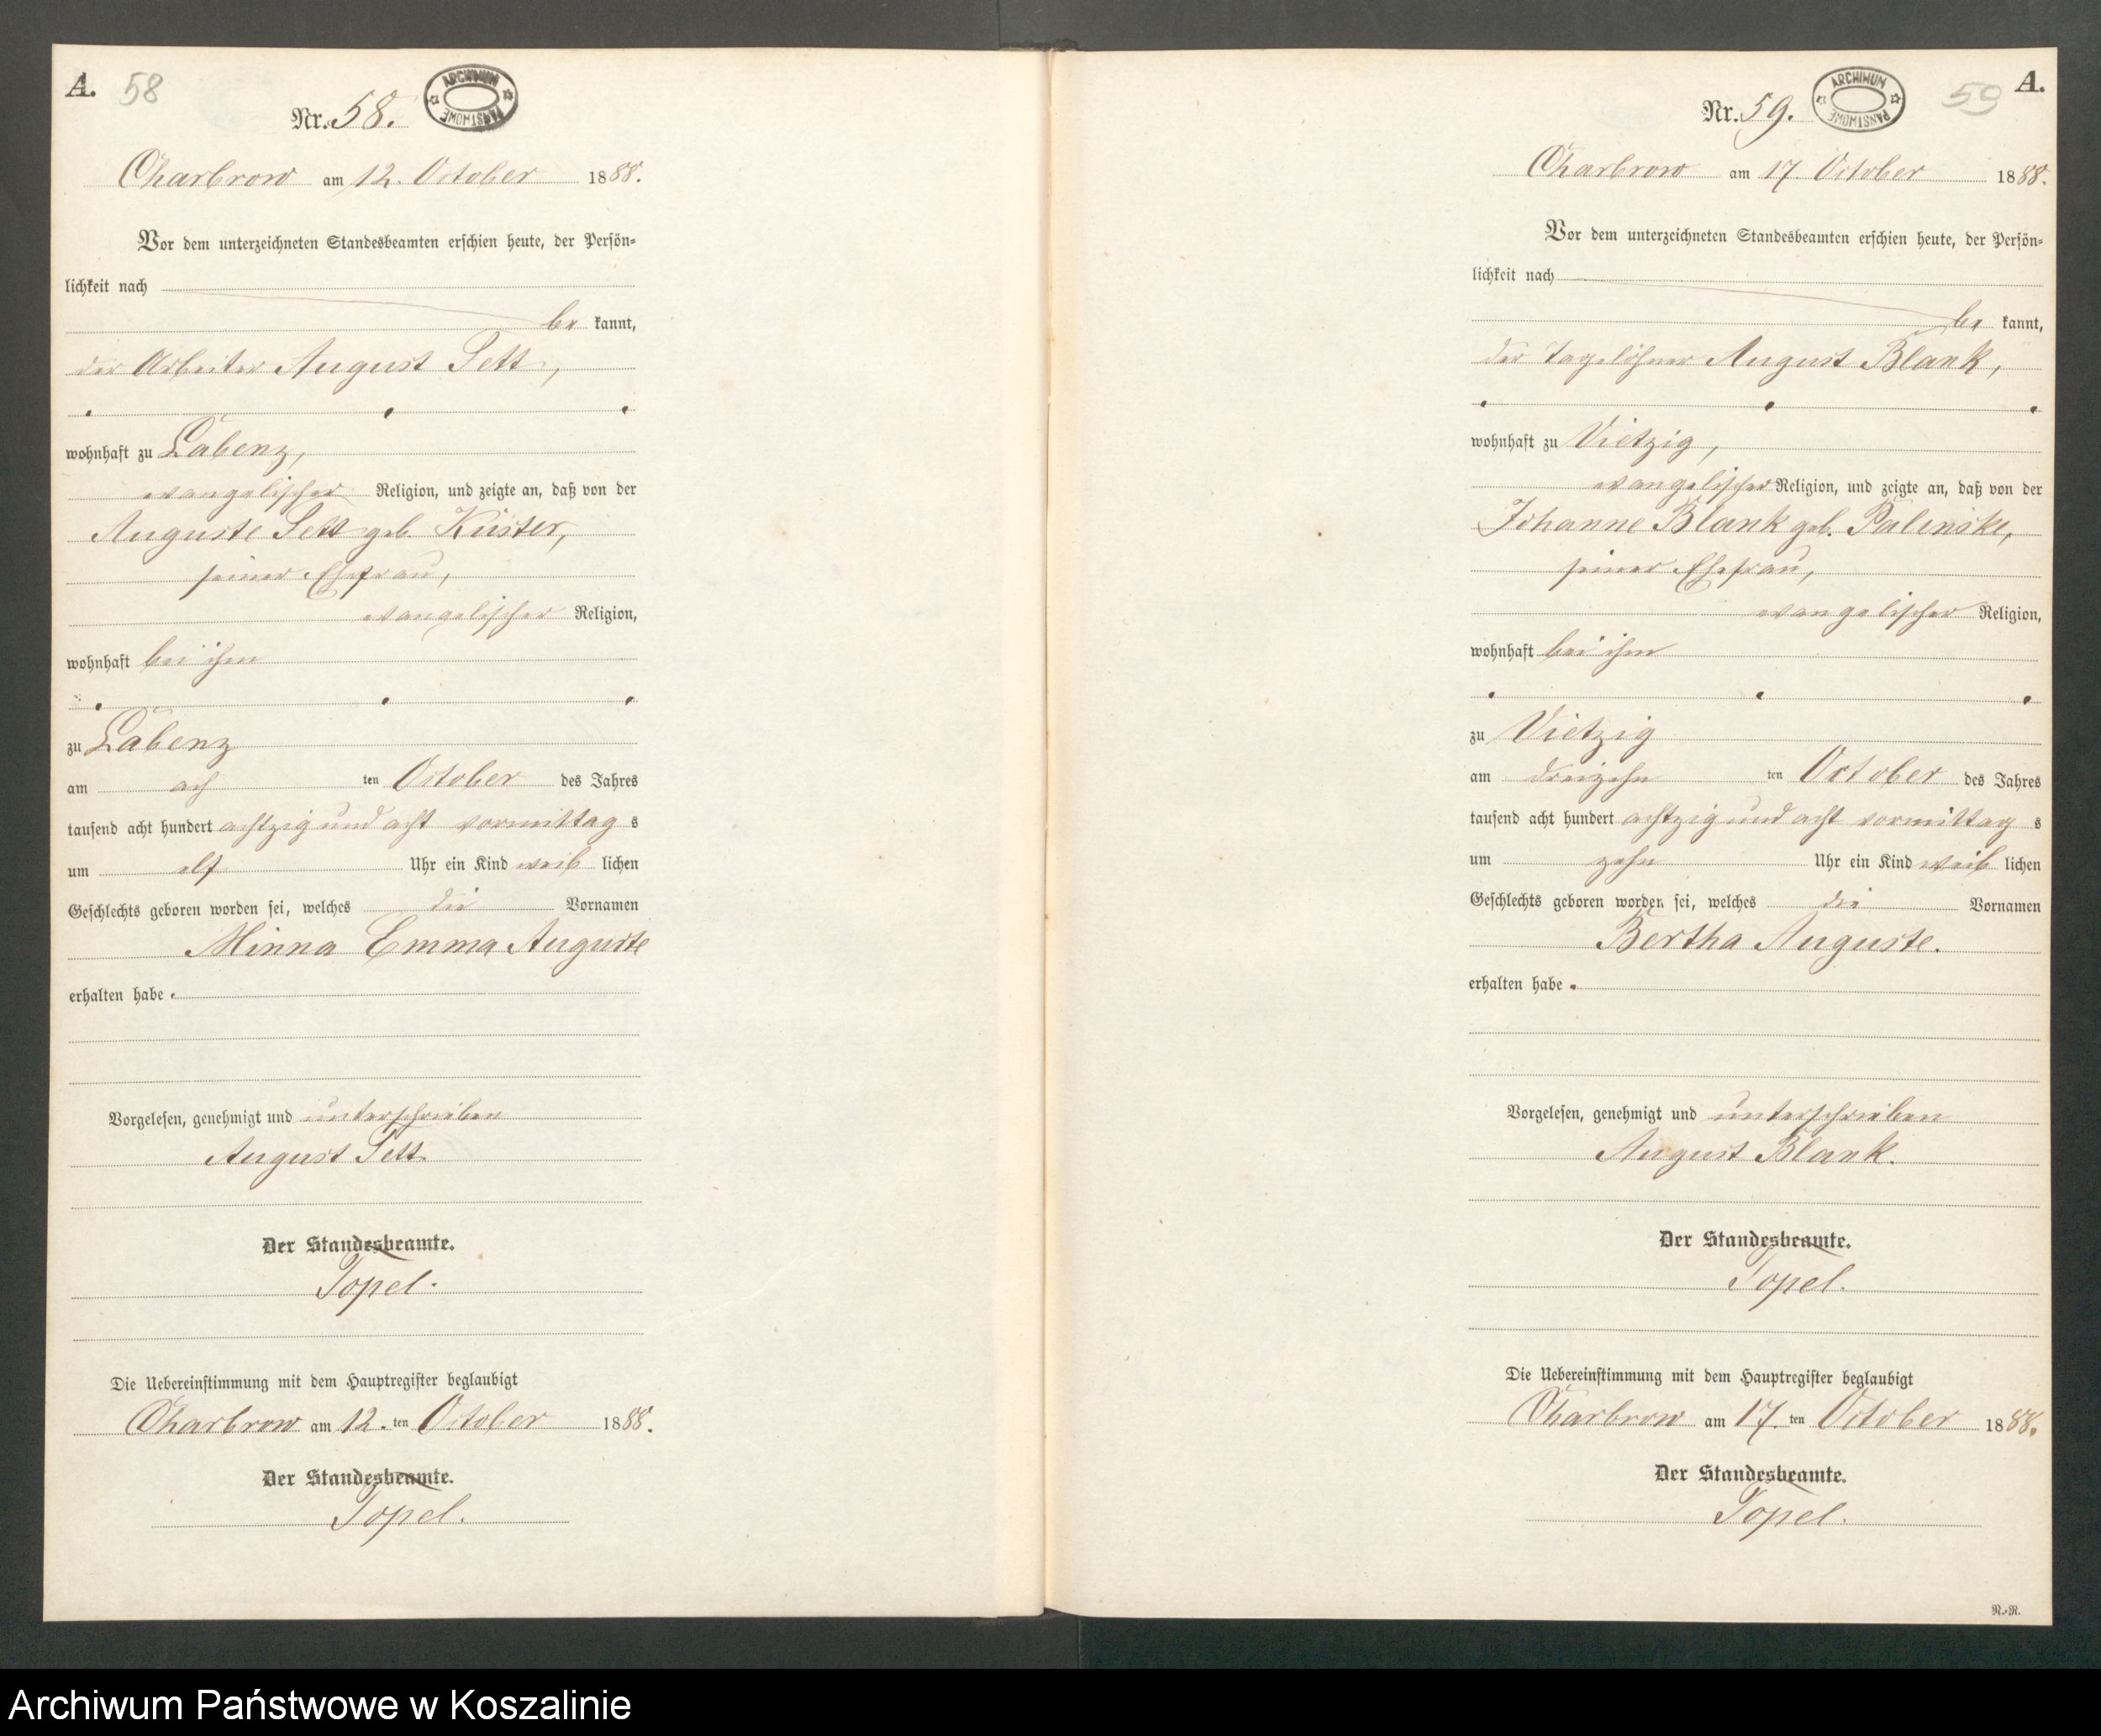 A. 58
Nr. 58.
ARCHIWUM PAŃSTWOWE
Charbrow am 12. October 1888.
Vor dem unterzeichneten Standesbeamten erschien heute, der Persön-
lichkeit nach
be kannt,
der Arbeiter August Sett,
wohnhaft zu Labenz,
evangelischer Religion, und zeigte an, daß von der
Auguste Sett geb. Küster,
seiner Ehefrau,
evangelischer Religion,
wohnhaft bei ihm
zu Labenz
am ach ten October des Jahres
tausend acht hundert achtzig und acht vormittag s
um elf Uhr ein Kind weib lichen
Geschlechts geboren worden sei, welches die Vornamen
Minna Emma Auguste
erhalten habe.
Vorgelesen, genehmigt und unterschrieben
August Sett
Der Standesbeamte.
Topel.
Die Uebereinstimmung mit dem Hauptregister beglaubigt
Charbrow am 12. ten October 1888.
Der Standesbeamte.
Topel.
59 A.
Nr. 59.
ARCHIWUM PAŃSTWOWE
Charbrow am 17. October 1888.
Vor dem unterzeichneten Standesbeamten erschien heute, der Persön-
lichkeit nach
be kannt,
der Tagelöhner August Blank,
wohnhaft zu Vietzig,
evangelischer Religion, und zeigte an, daß von der
Johanne Blank geb. Palinske,
seiner Ehefrau,
evangelischer Religion,
wohnhaft bei ihm
zu Vietzig
am dreizehn ten October des Jahres
tausend acht hundert achtzig und acht vormittag s
um zehn Uhr ein Kind weib lichen
Geschlechts geboren worden sei, welches die Vornamen
Bertha Auguste.
erhalten habe.
Vorgelesen, genehmigt und unterschrieben
August Blank.
Der Standesbeamte.
Topel.
Die Uebereinstimmung mit dem Hauptregister beglaubigt
Charbrow am 17. ten October 1888.
Der Standesbeamte.
Topel.
R.-R.
Archiwum Państwowe w Koszalinie